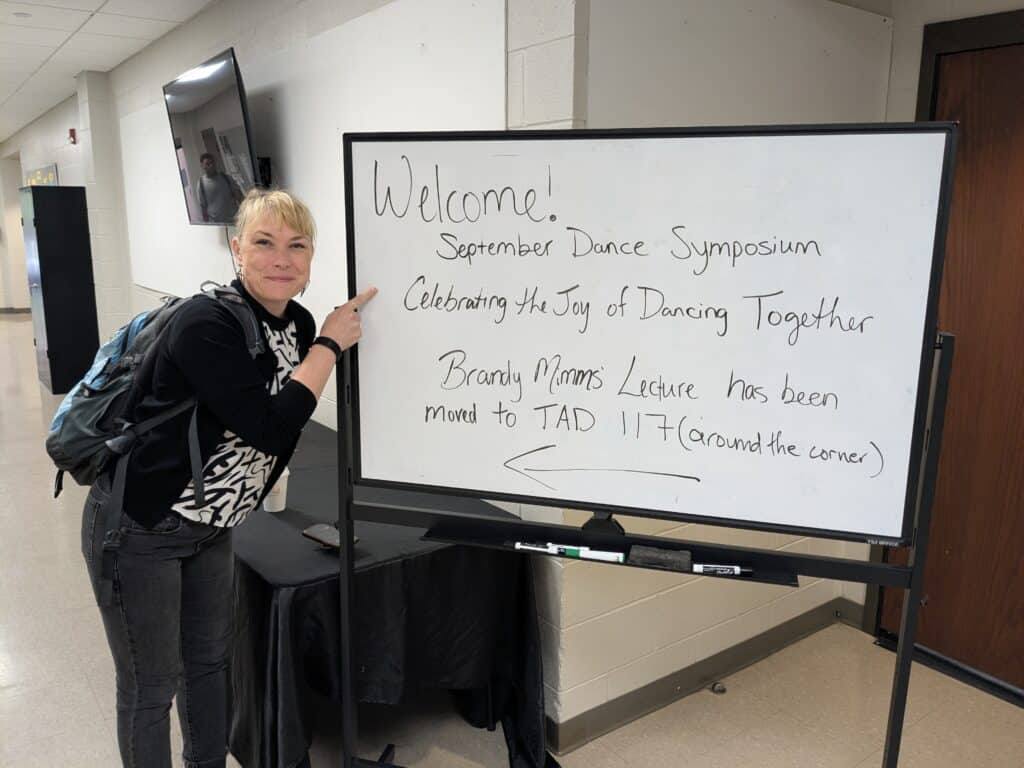 Welcome!
September Dance Symposium
Celebrating the Joy of Dancing Together
Brandy Mimms' Lecture has been
moved to TAD 117 (around the corner)